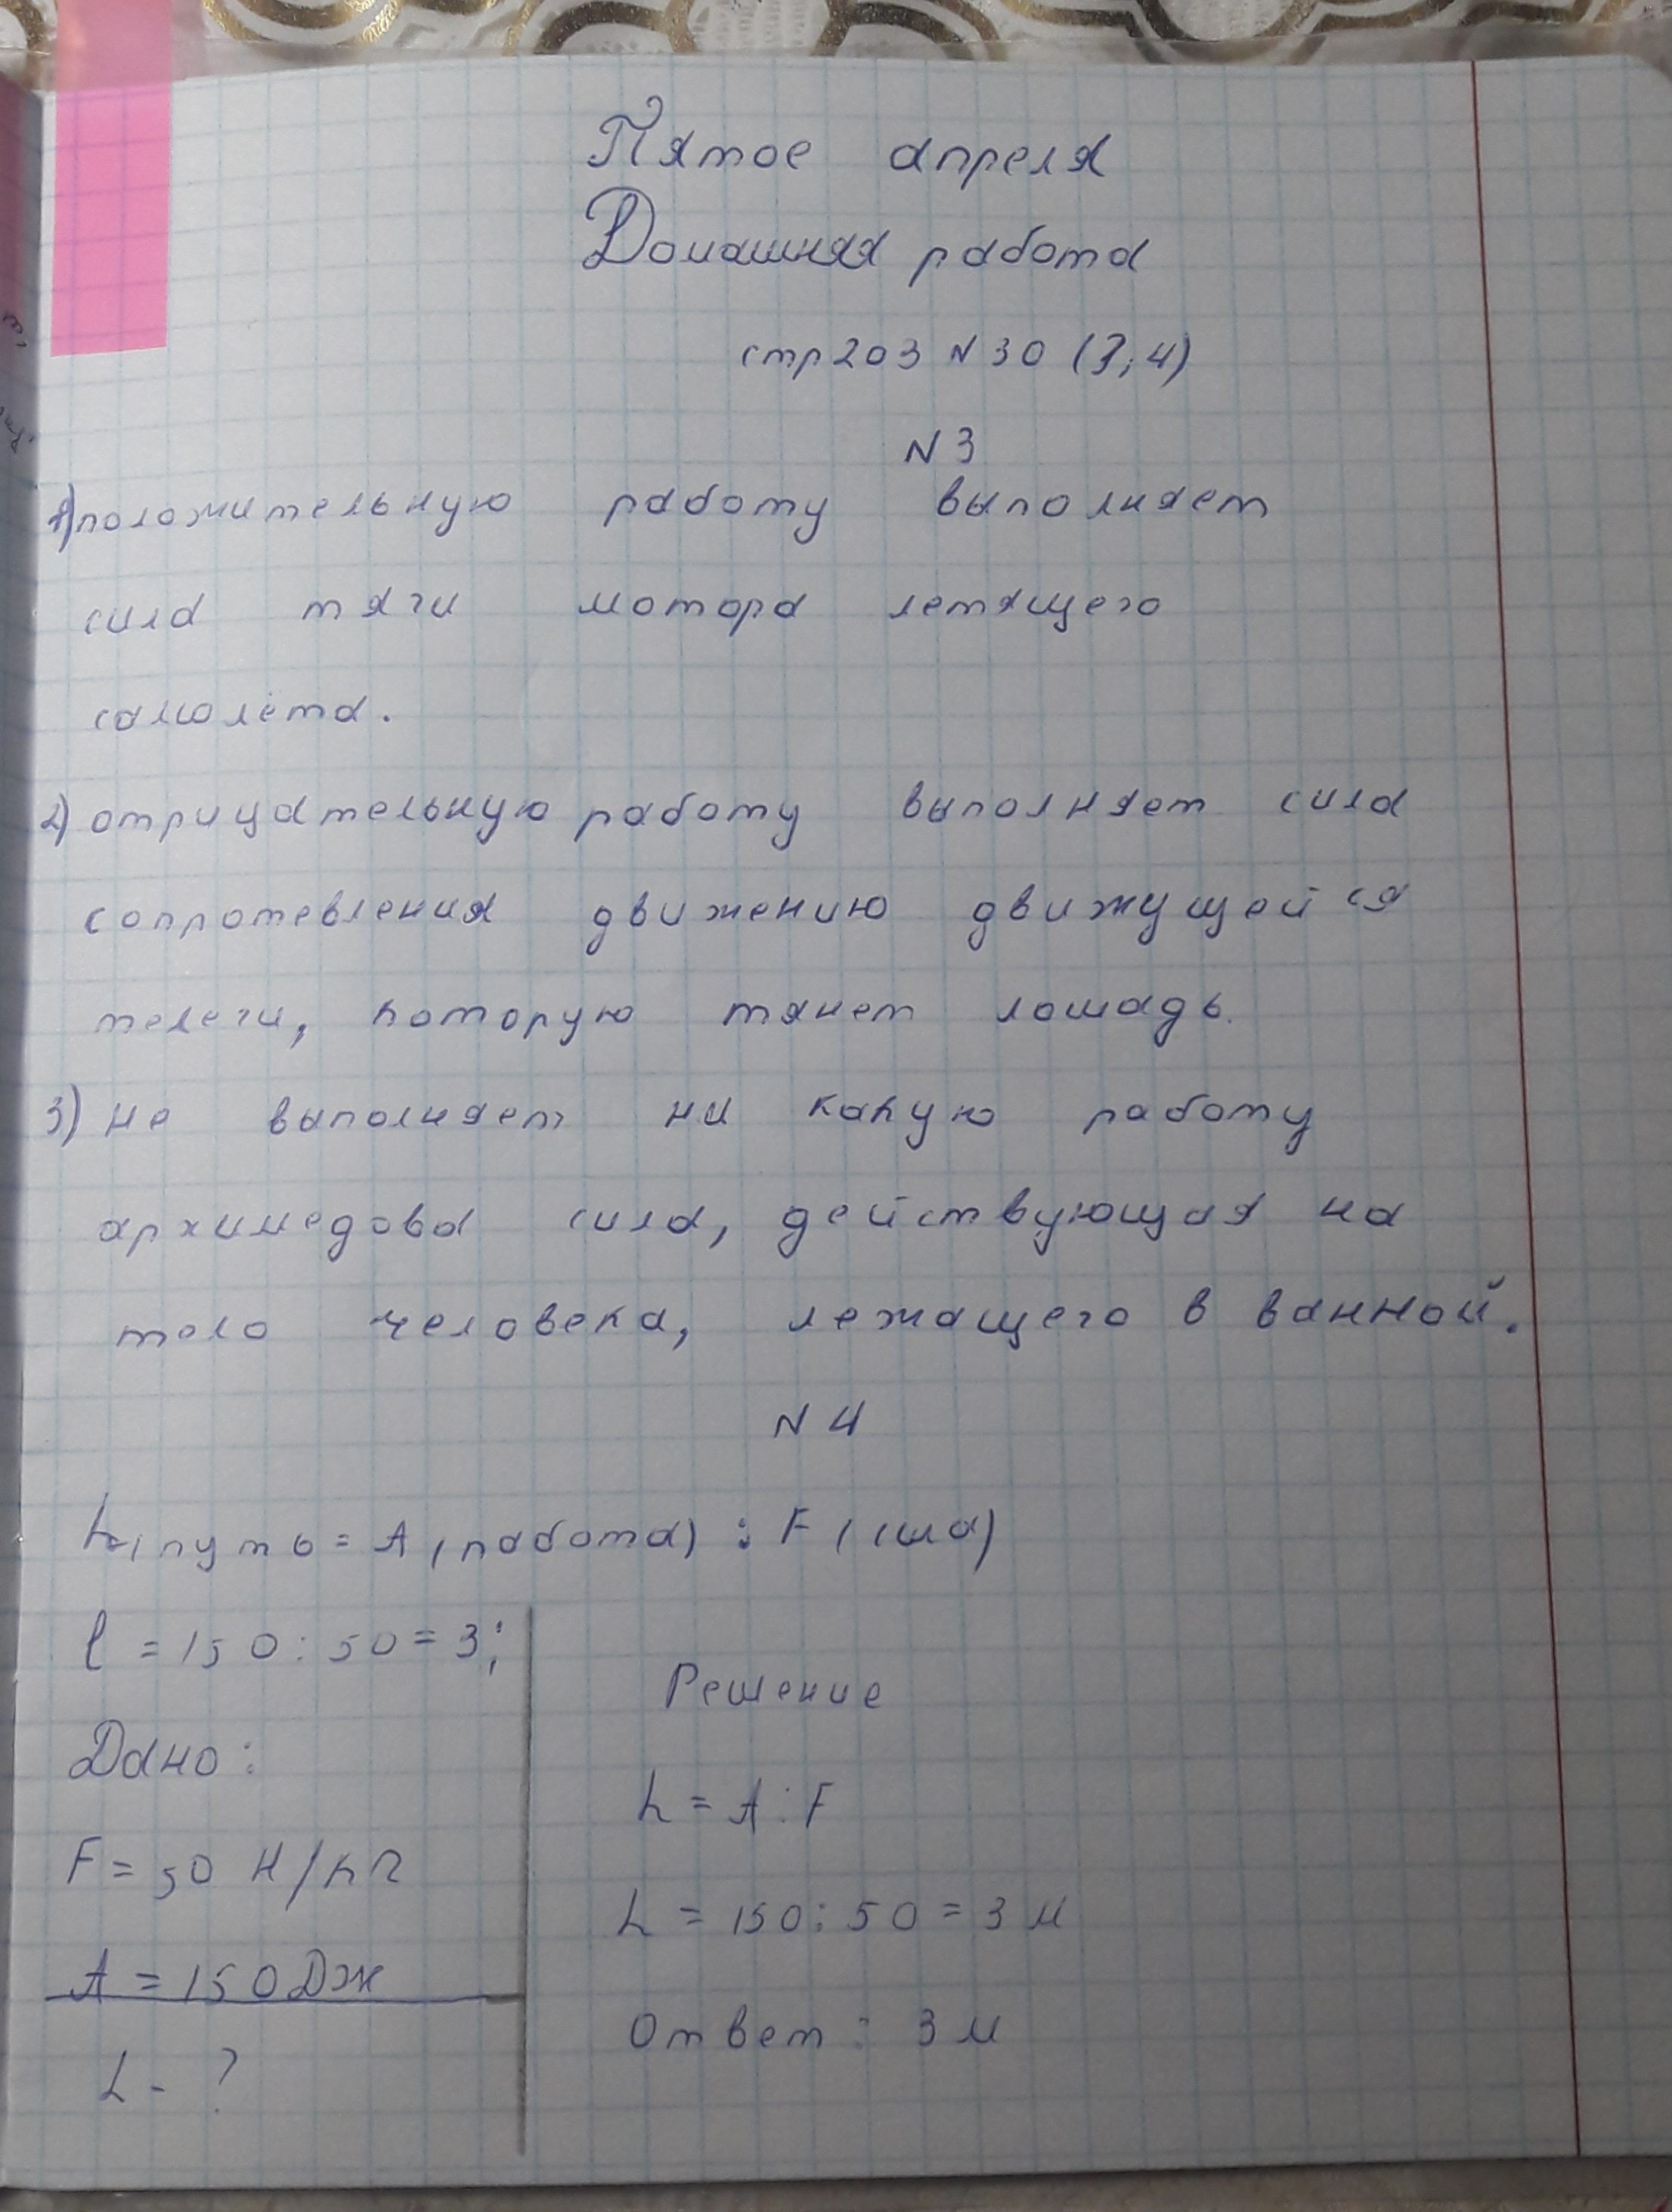 Пятое апреля
Домашняя работа
стр 203 N 30 (3; 4)
N 3
1) положительную работу выполняет
сила тяги мотора летящего
самолёта.
2) отрицательную работу выполняет сила
сопротевления движению движущейся
телеги, которую тянет лошадь.
3) не выполняет ни какую работу
архимедова сила, действующая на
тело человека, лежащего в ванной.
N 4
L (путь = A (работа) : F (сила)
l = 150 : 50 = 3;
Дано:
F = 50 Н/кг
A = 150 Дж
L - ?
Решение
L = A : F
L = 150 : 50 = 3 м
Ответ: 3 м